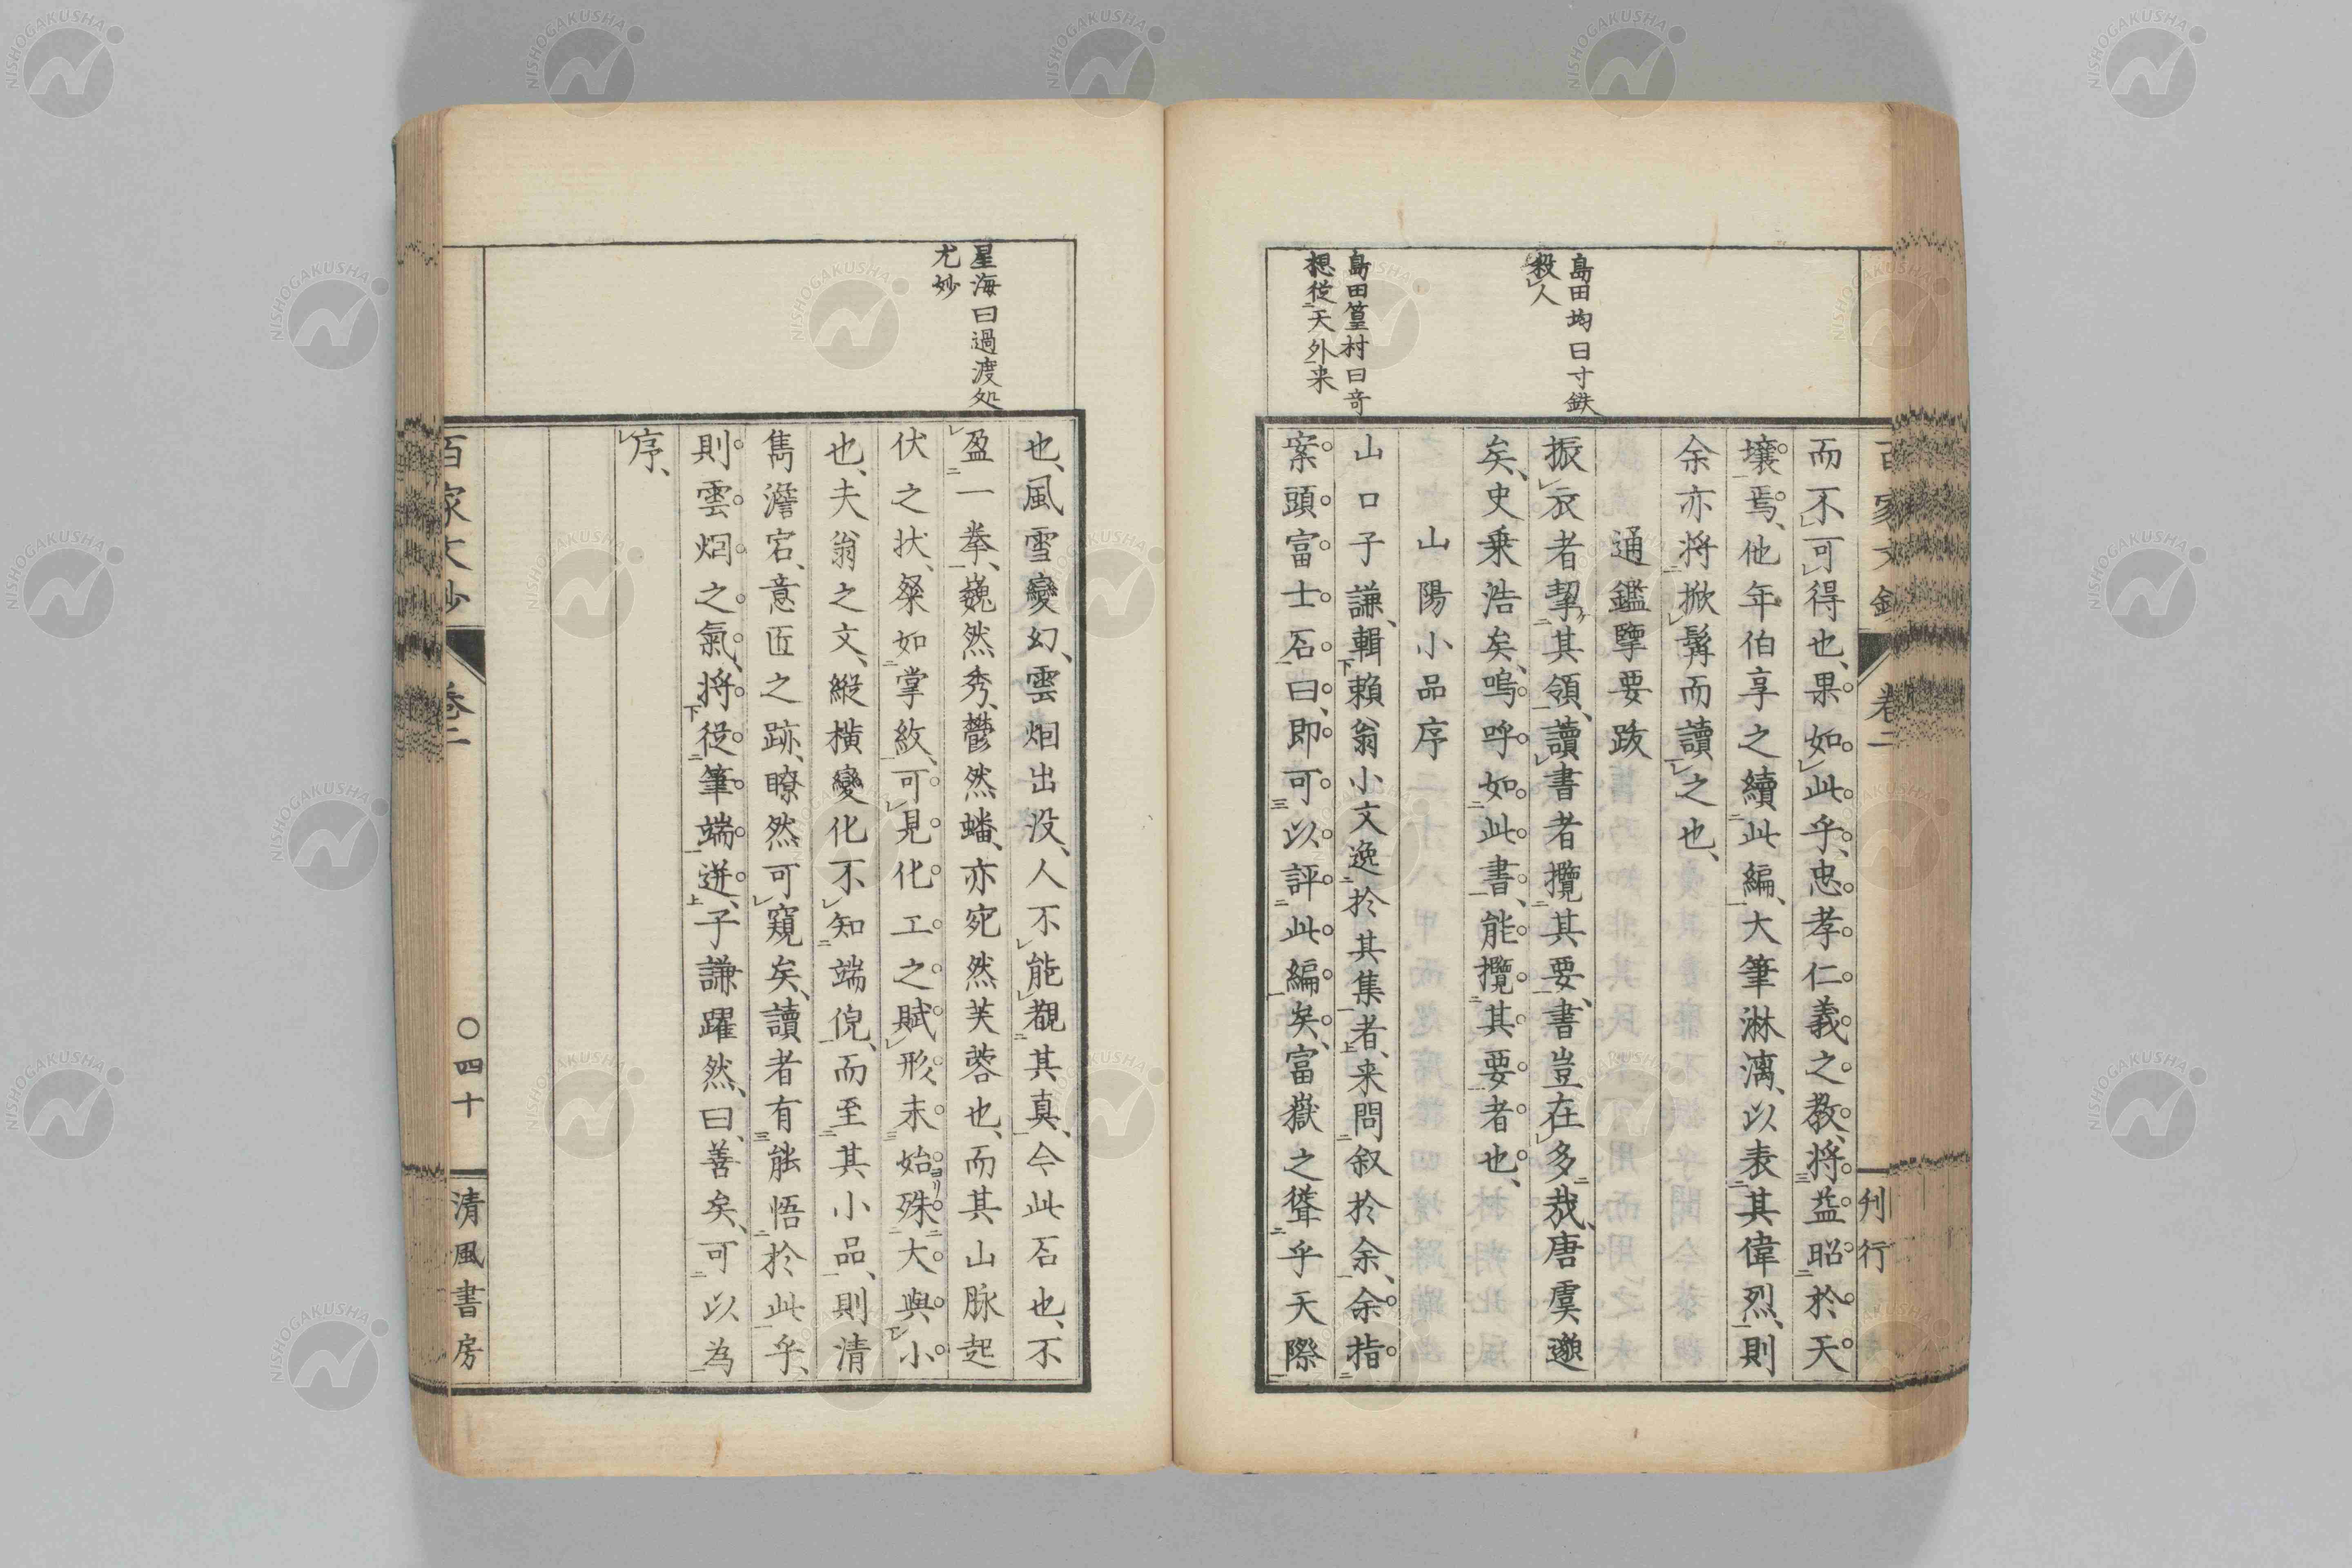 百家文鈔
卷二
刋行
而不可得也、果如此乎、忠孝仁義之教、將益昭於天
壤焉、他年伯享之續此編、大筆淋漓、以表其偉烈、則
余亦將掀髯而讀之也、
通鑑擥要跋
島田均曰寸鉄
殺人
振衣者挈其領、讀書者攬其要、書豈在多哉、唐虞邈
矣、史乗浩矣、嗚呼如此書、能攬其要者也、
山陽小品序
島田篁村曰竒
想從天外来
山口子謙、輯賴翁小文逸於其集者、来問叙於余、余指
案頭富士石曰、即可以評此編矣、富嶽之聳乎天際
也、風雪變幻、雲烟出没、人不能覩其真、今此石也、不
星海曰過渡処
尤妙
盈一拳、巍然秀、鬱然蟠、亦宛然芙蓉也、而其山脉起
伏之状、粲如掌紋、可見化工之賦形、未始殊大與小
也、夫翁之文、縱横變化不知端倪、而至其小品、則清
雋澹宕、意匠之跡、瞭然可窺矣、讀者有能悟於此乎、
則雲烟之氣、將從筆端迸、子謙躍然曰、善矣、可以為
序、
百家文鈔
卷二
〇四十
清風書房
NISHOGAKUSHA